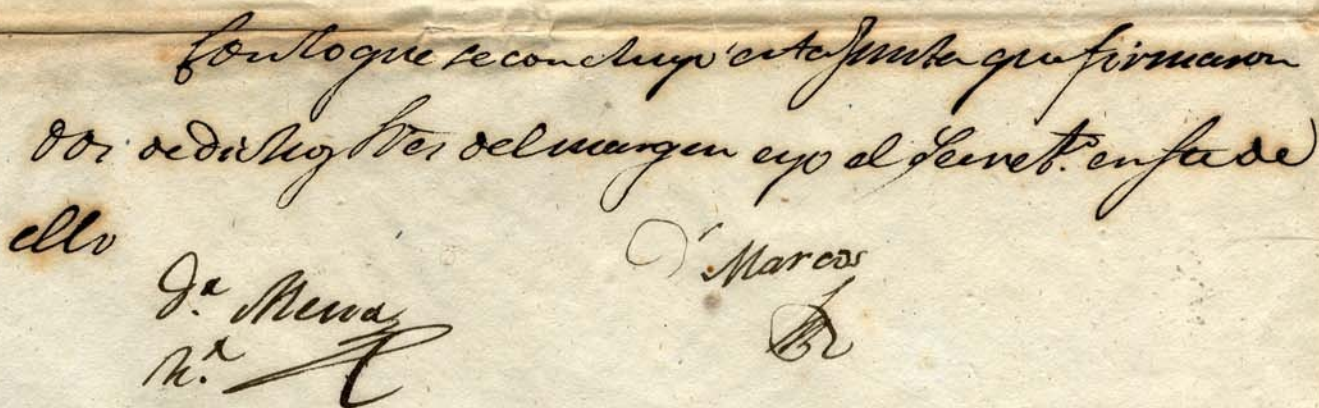 Con lo que se concluyó esta Junta que firmaron
dos de dichos Sres del margen e yo el Secret.º en fee de
ello
Marcos
D.r Mena